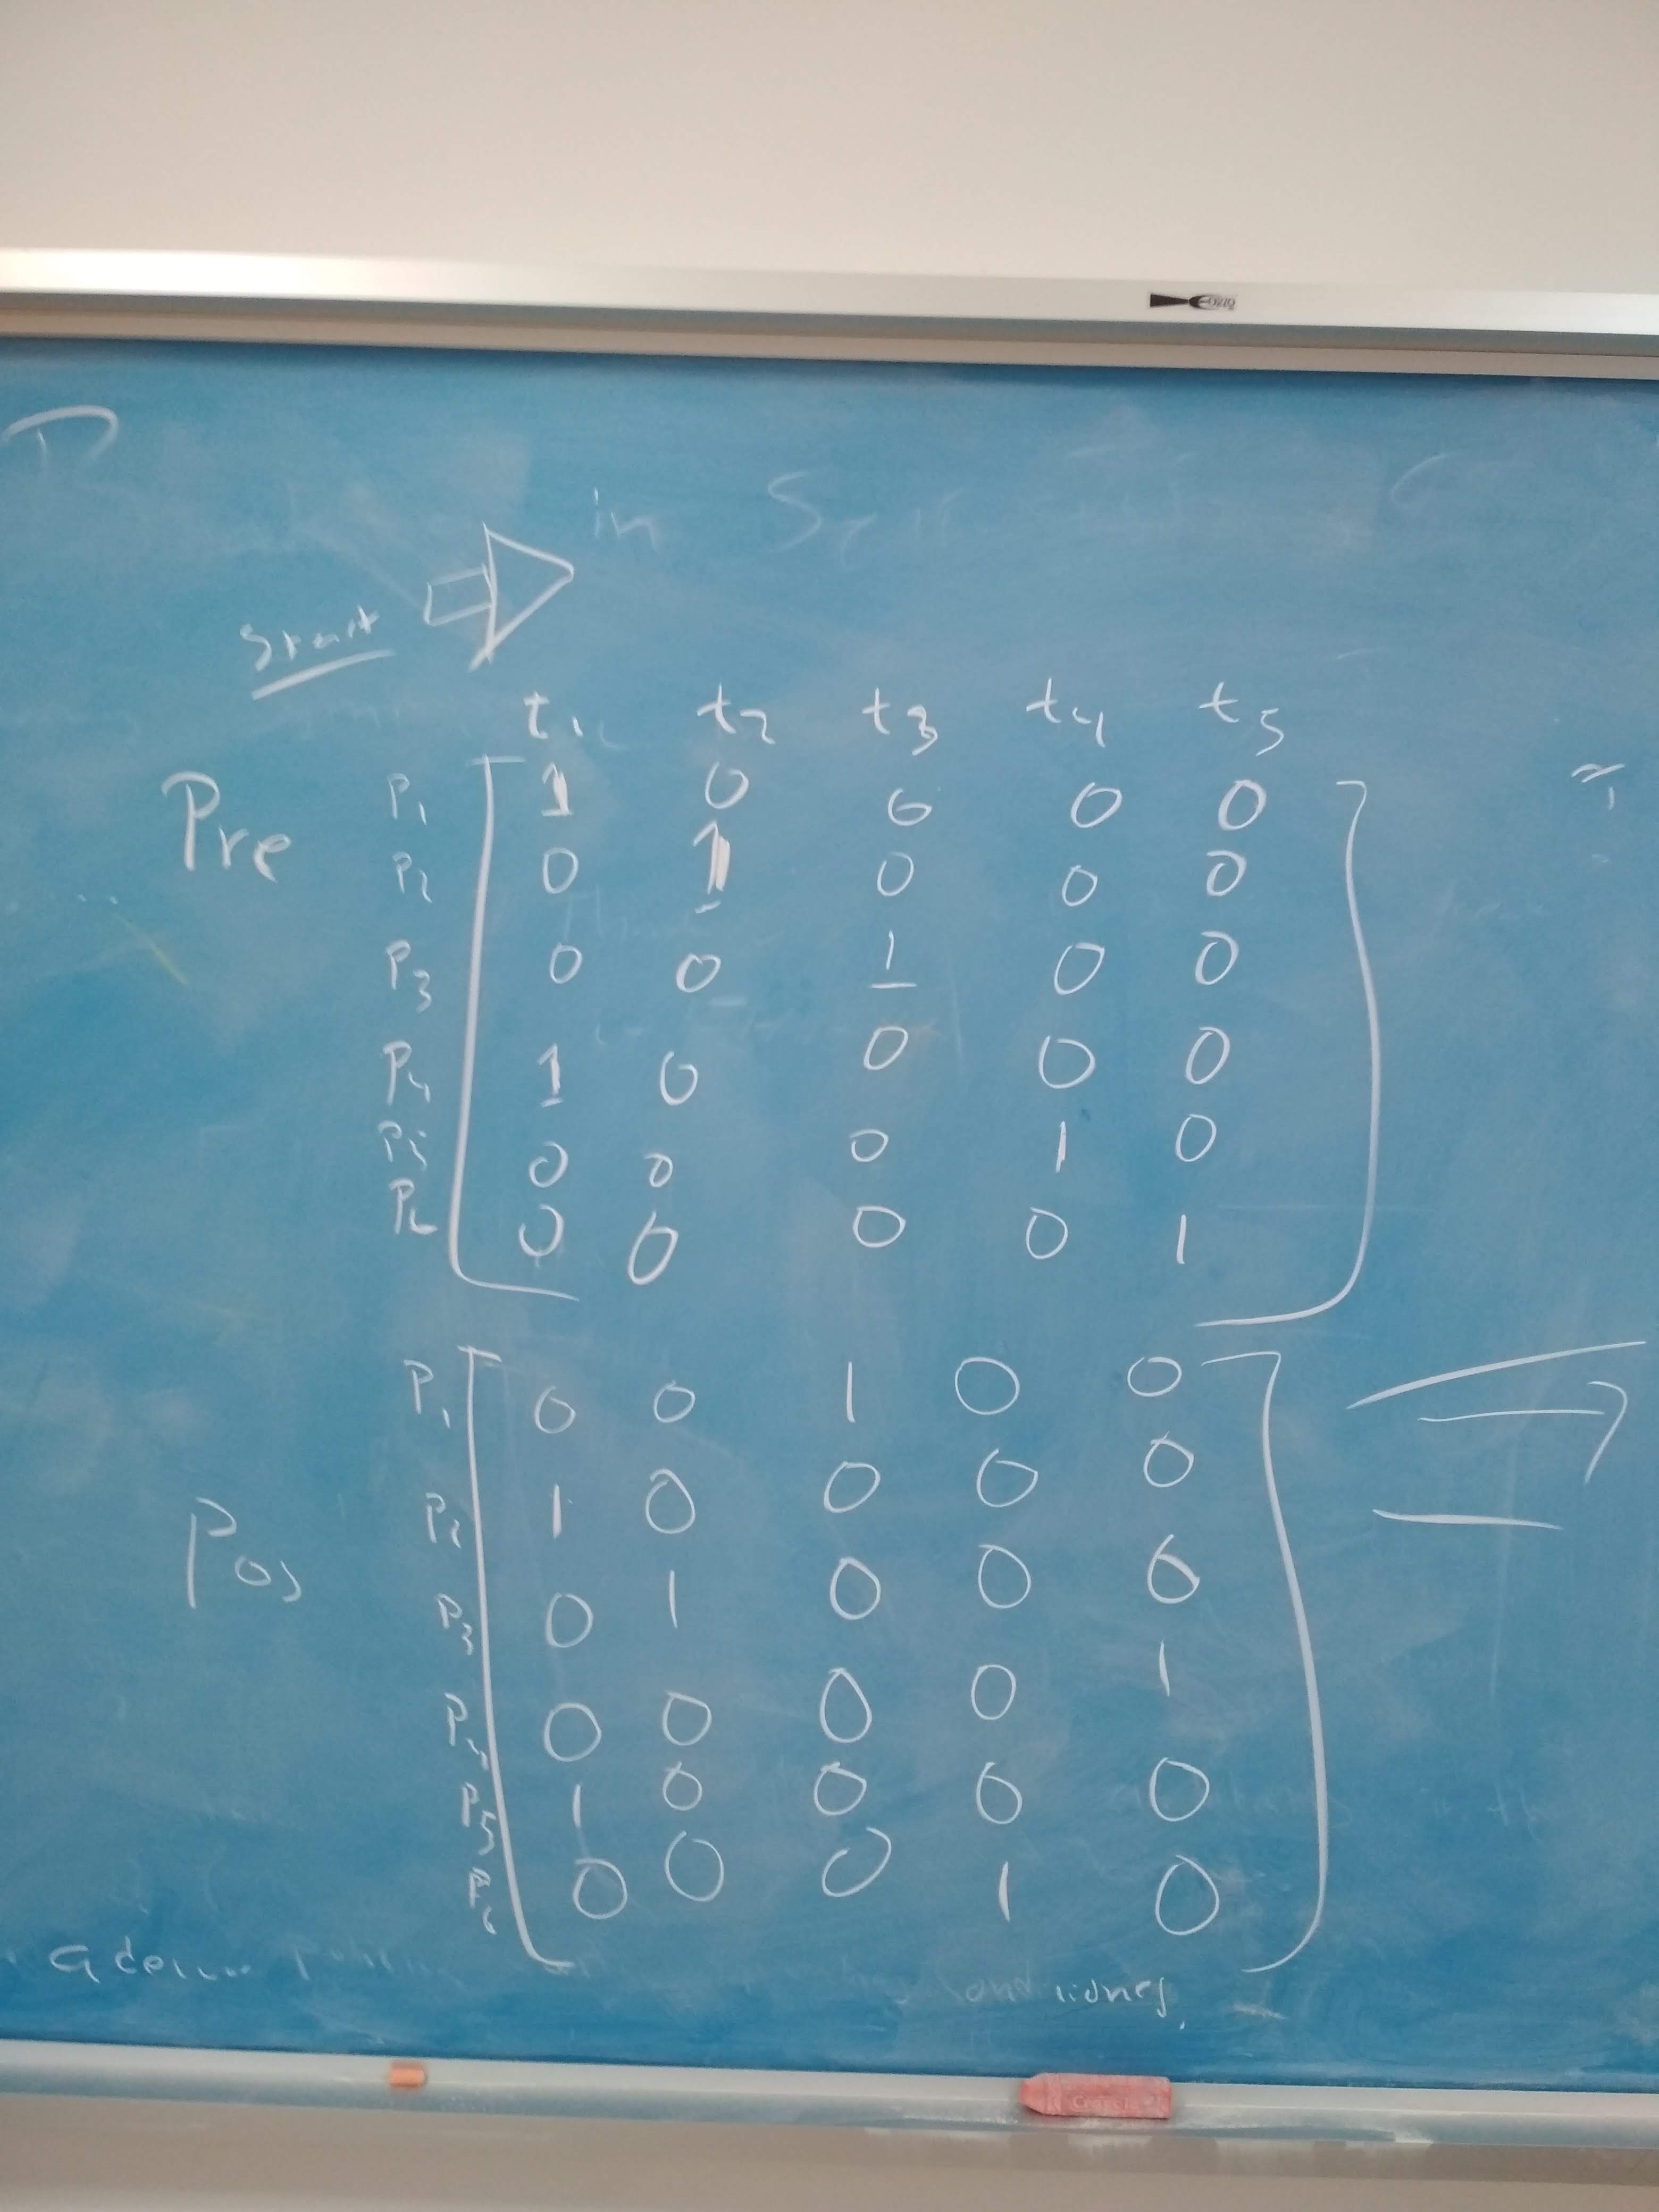 in
Start
t1 t2 t3 t4 t5
Pre
P1 1 0 0 0 0
P2 0 1 0 0 0
P3 0 0 1 0 0
P4 1 0 0 0 0
P5 0 0 0 1 0
P6 0 0 0 0 1
Pos
P1 0 0 1 0 0
P2 1 0 0 0 0
P3 0 1 0 0 0
P4 0 0 0 0 1
P5 1 0 0 0 0
P6 0 0 0 1 0